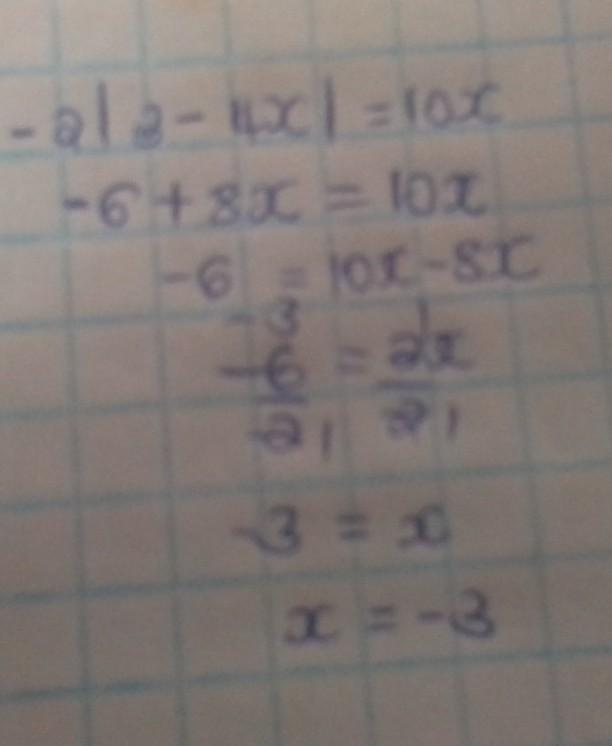 -2|3-4x| = 10x
-6+8x = 10x
-6 = 10x-8x
-3 1
-6 = 2x
2 1 2 1
-3 = x
x = -3